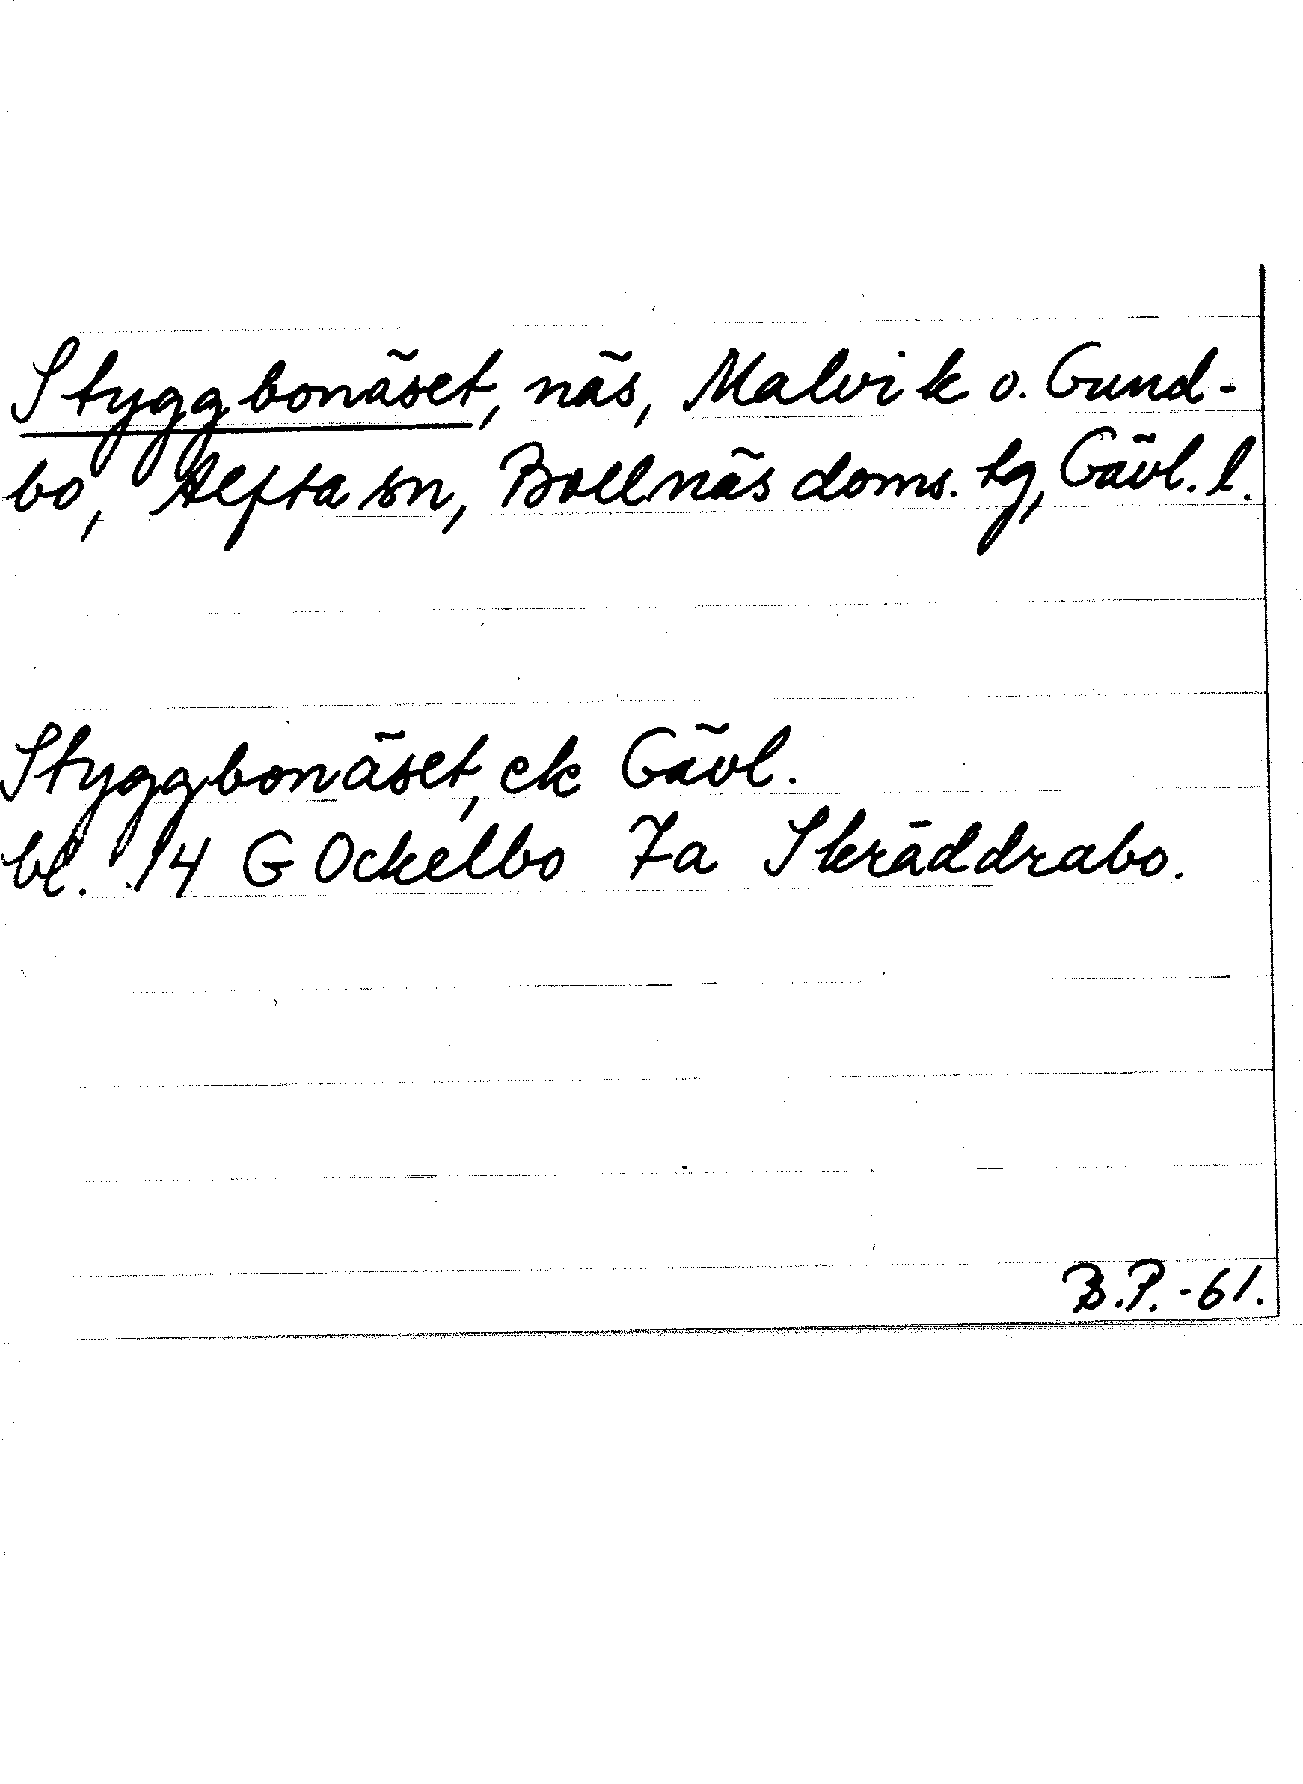 Styggbonäset, näs, Malvik o. Gund-
bo, Alfta sn, Bollnäs doms. tg, Gävl. l.
Styggbonäset, ek Gävl.
bl. 14 G Ockelbo 7a Skräddrabo.
B.P. -61.